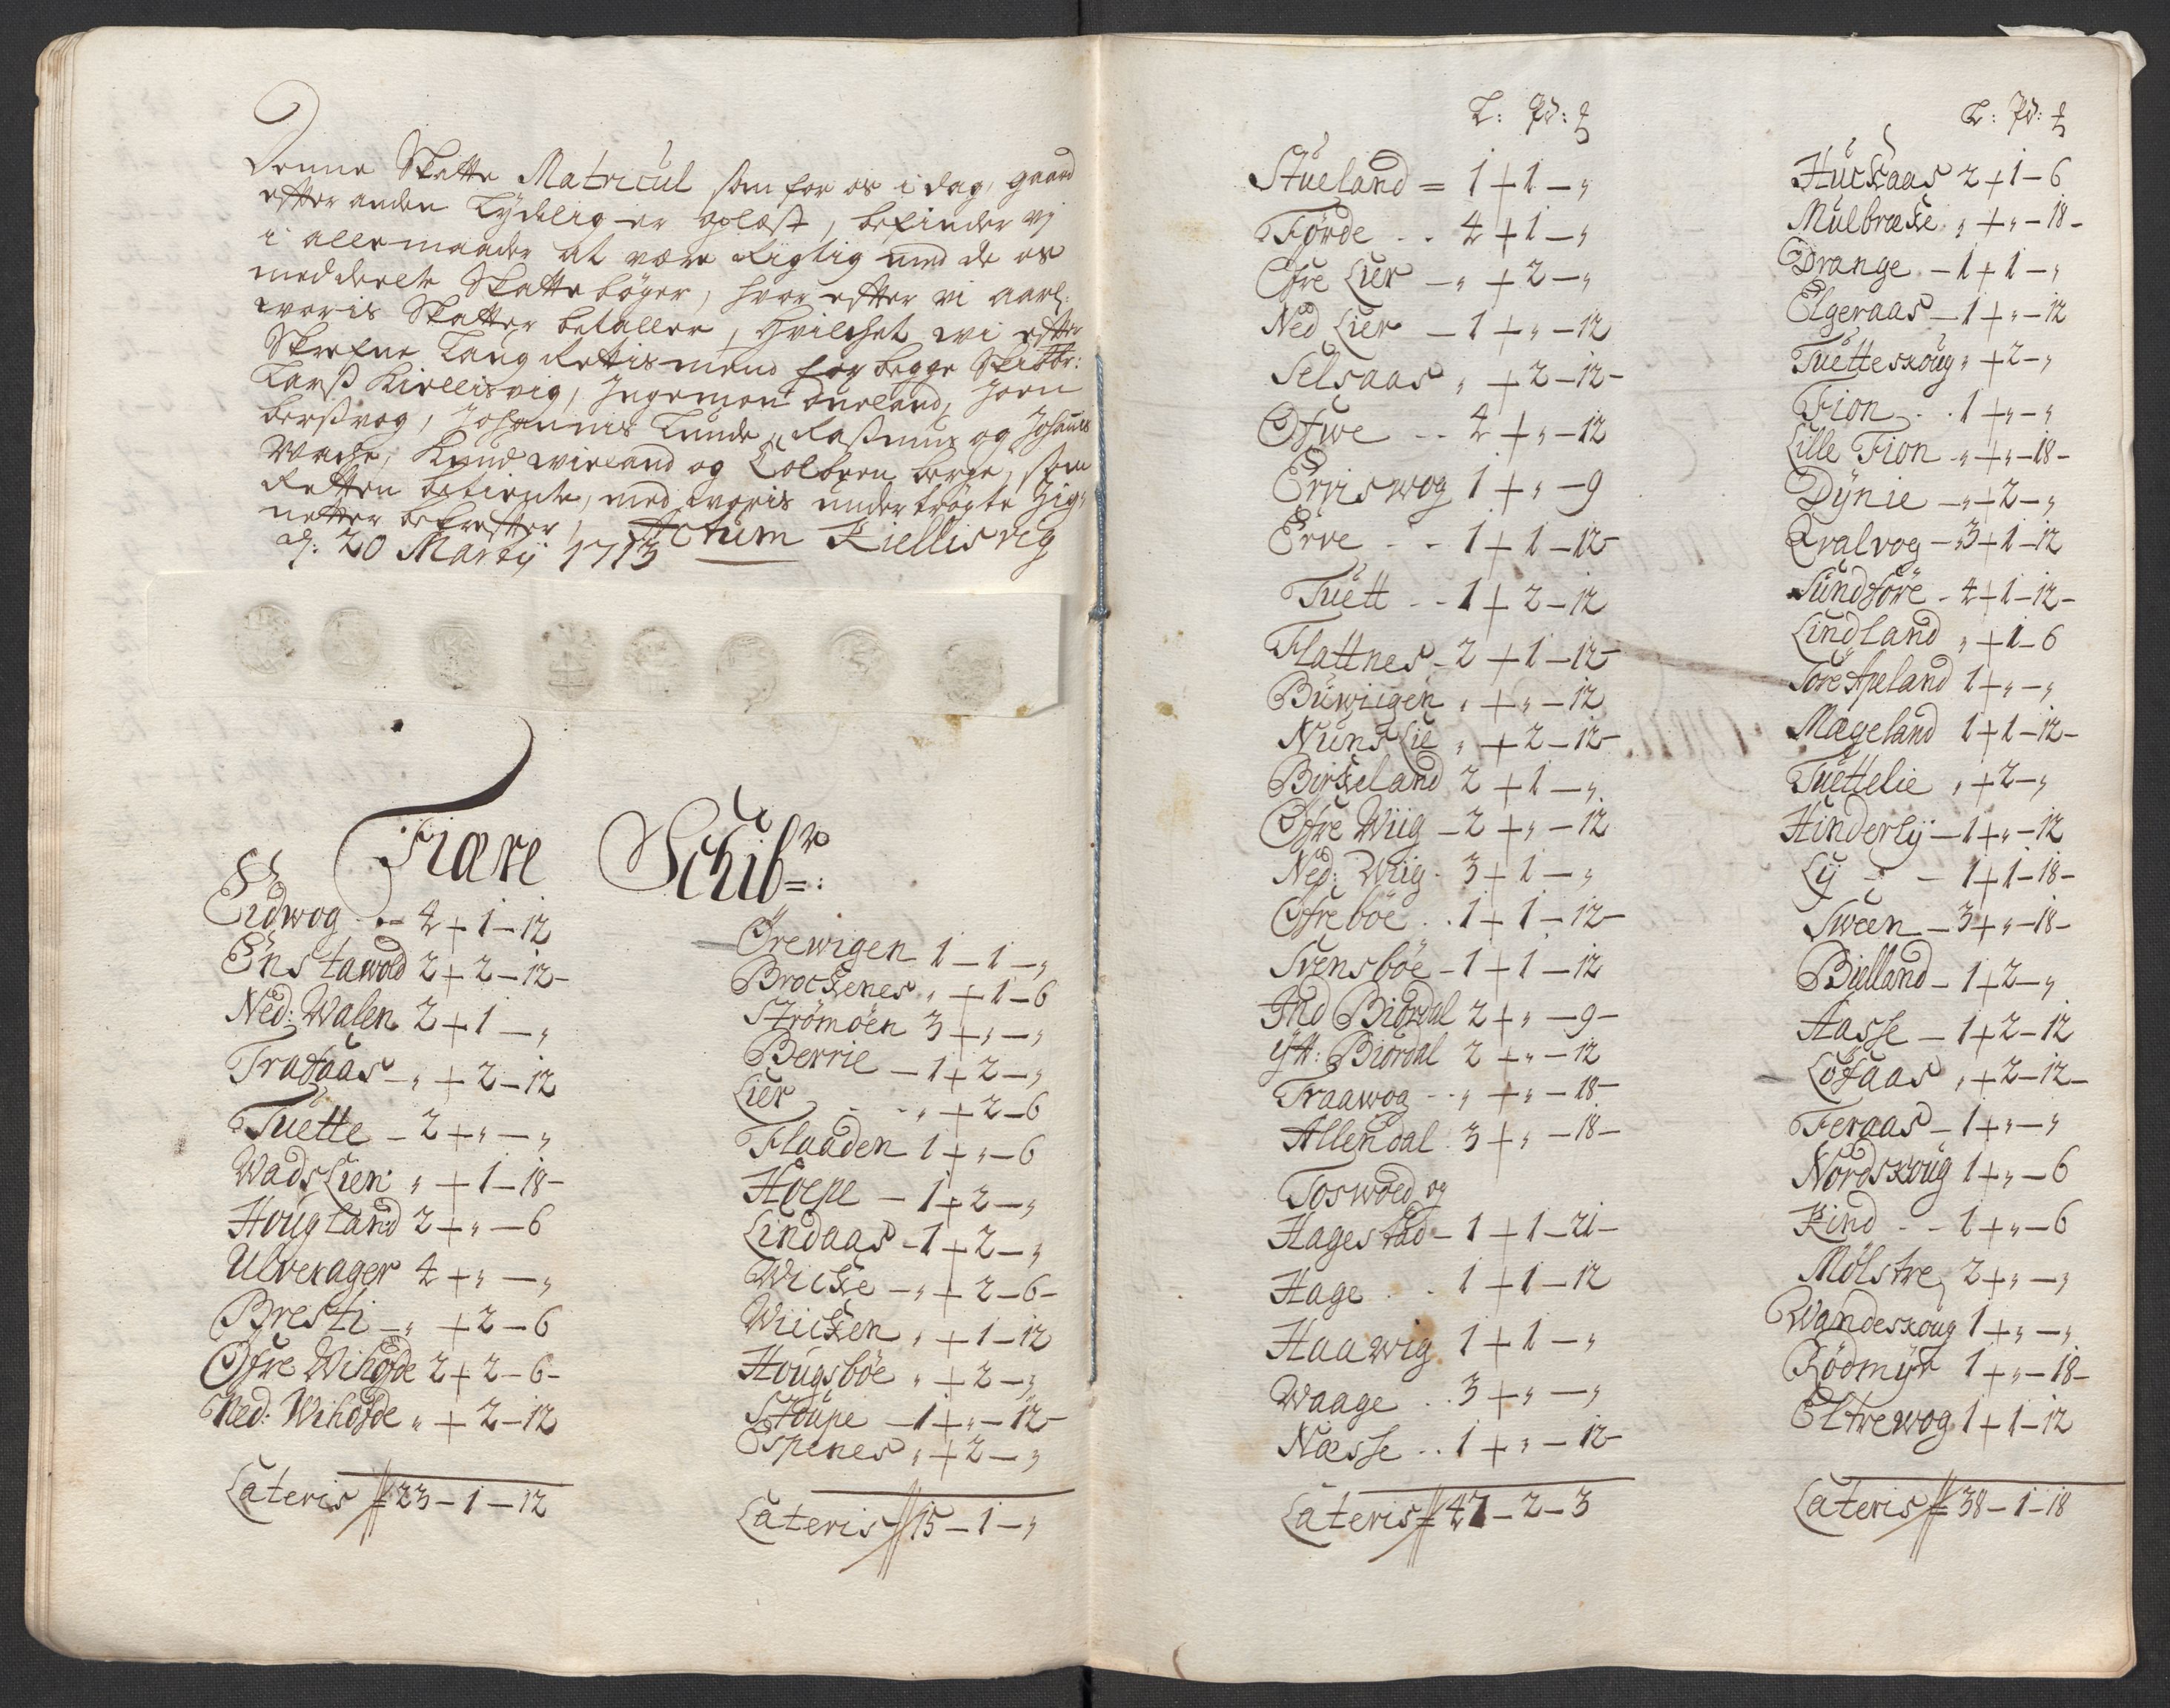 Denne Skatte Matricul som for os i dag, gaard
efter anden Tydelig er oplæst, befinder vj
i alle maader at være Rigtig med de os
meddeelte Skattebøger, hvor efter vi aarl:
voris Skatter betaller, Hvilchet wi efter
Skrefne Laug Rettismend for begge Skibbr:
Larß Kiellisvig, Ingemon Øneland, Joen
Johannis Lunde, Raßmus og Johannes
Wache, Knud wireland og Tolbern berge, som
Retten betiente, med woris undertrögte Zig,,
netter bekrefter, Actum Kiellisvig
d: 20 Martij 1713
Fiære Schibr=:
Eidwog .- 4 + 1 - 12
Enstawold 2 + 2 - 12 -
Ned: Walen 2 + 1 - „
Trafaas - „ + 2 - 12
Tuette - 2 + „ - „
WadsLien „ + 1 - 18 -
Hougland 2 + „ - 6
Ulverager 4 + „ - „
Bresti - „ + 2 - 6
Ofre Wihofde 2 + 2 - 6 -
Ned: Wihofde „ + 2 - 12
Lateris 23 - 1 - 12
Örewigen 1 - 1 - „
Brockenes „ + 1 - 6
Strömöen 3 + „ - „
Berrie - 1 + 2 - „
Lier - - „ + 2 - 6
Flaaden 1 + „ - 6
Hoepe - 1 + 2 - „
Lindaas - 1 + 2 - „
Wicke - „ + 2 - 6 -
Wiicken „ + 1 - 12
Hougsböe „ + 2 - „
Stoupe - 1 + „ - 12 -
Espenes „ + 2 - „
Lateris 15 - 1 - „
L: Pd: ꝥ
Stueland = 1 + 1 - „
Förde .. 4 + 1 - „
Ofre Lier - „ + 2 - „
Ned Lier - 1 + „ - 12
Selsaas „ + 2 - 12 -
Ofwe .. 4 + „ - 12
Erviswog 1 + „ - 9
Erve - - 1 + 1 - 12 -
Tuett - - 1 + 2 - 12
Flattnes - 2 + 1 - 12 -
Buwiigen „ + „ - 12
NunsLie „ + 2 - 12 -
Birkeland 2 + 1 - „
Ofre Wiig - 2 + „ - 12
Ned: Wiig - 3 + 1 - „
Ofreböe .. 1 + 1 - 12 -
Svensböe - 1 + 1 - 12
Ind Biordal 2 + „ - 9 -
Ytt: Biordal 2 + „ - 12
Traawog - - „ + „ - 18 -
Allendal . 3 + „ - 18 -
Toswold og
Hagestad - 1 + 1 - 21 -
Hage . . 1 + 1 - 12
Haawig 1 + 1 - „
Waage .. 3 + „ - „
Næsse .. 1 + „ - 12 -
Lateris = 47 - 2 - 3
L: Pd: ꝥ
Huckaas 2 + 1 - 6
Mulbrække „ + „ - 18 -
Drange - 1 + 1 - „
Elgeraas - 1 + „ - 12
Tuetteskoug „ + 2 - „
Fion . . 1 + „ - „
Lille Fion - „ + „ - 18 -
Dÿnie - „ + 2 - „
Qvalvog - 3 + 1 - 12
Sundföre - 4 + 1 - 12 -
Lindland „ + 1 - 6
Tore Apeland 1 + „ - „
Mægeland 1 + 1 - 12 -
Tuettelie „ + 2 - „
Hinderlÿ - 1 + „ - 12
Lÿ - - 1 + 1 - 18 -
Sween - 3 + „ - 18 -
Bielland - 1 + 2 - „
Aasse - 1 + 2 - 12
Löfaas „ + 2 - 12 -
Feraas - 1 + „ - „
Nordskoug 1 + „ - 6
Rind - - 1 + „ - 6
Mölstre 2 + „ - „
Wandeskoug 1 + „ - „
Rödmÿr 1 + „ - 18 -
Eltrewog 1 + 1 - 12
Lateris = 38 - 1 - 18